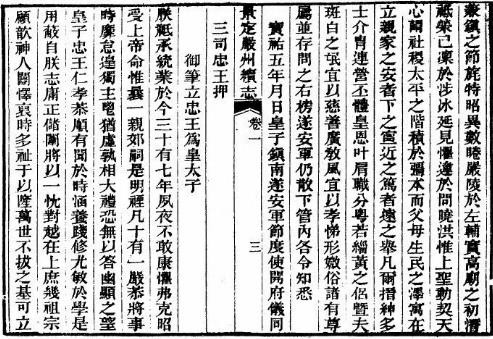 叢鎮之節旄特昭異數睠嚴陵於左輔實高廟之初潛
祗榮已凜於涉冰延見懼違於問曉洪惟上聖動契天
心闢社稷太平之階積於彌本而父母生民之澤寓在
立親家之安者下之寧近之篤者遠之舉凡爾搢紳多
士介冑連營丕體皇恩叶肩職分粤若緇黃之侶暨夫
斑白之氓宜以慈善廣教風宜以孝悌形媺俗諸有尊
屬並存問之右榜遂安軍仍散下管內各令知悉
寶祐五年月日皇子鎮南遂安軍節度使開府儀同
三司忠王押
景定嚴州續志
卷一
三
御筆立忠王為皇太子
朕祗承統業於今三十有七年夙夜不敢康懼弗克昭
受上帝命惟曩一親郊嗣是明禋凡十有一嚴恭將事
時靡怠遑獨主鬯猶虛孰相大禮恐無以答幽顯之望
皇子忠王仁孝恭順有聞於時涵養踐修尤敏於學是
用蔽自朕志庸正儲闈將以一忱對越在上庶幾祖宗
顧歆神人闓懌裒時多祉于以隆萬世不拔之基可立